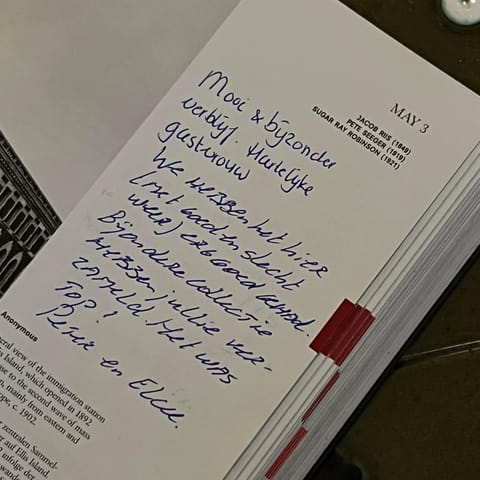 MAY 3
JACOB RIIS (1849)
PETE SEEGER (1919)
SUGAR RAY ROBINSON (1921)
Mooi & bijzonder
verblijf. Hartelijke
gastvrouw
We hebben het hier
(met goed en slecht
weer) erg goed gehad.
Bijzondere collectie
hebben jullie ver-
zameld. Het was
Top!
Reinir en Ellen.
Anonymous
eral view of the immigration station
Island, which opened in 1892
se to the second wave of mass
n, mainly from eastern and
ope. c. 1902.
r zentralen Sammel-
er auf Ellis Island.
92 infolge der